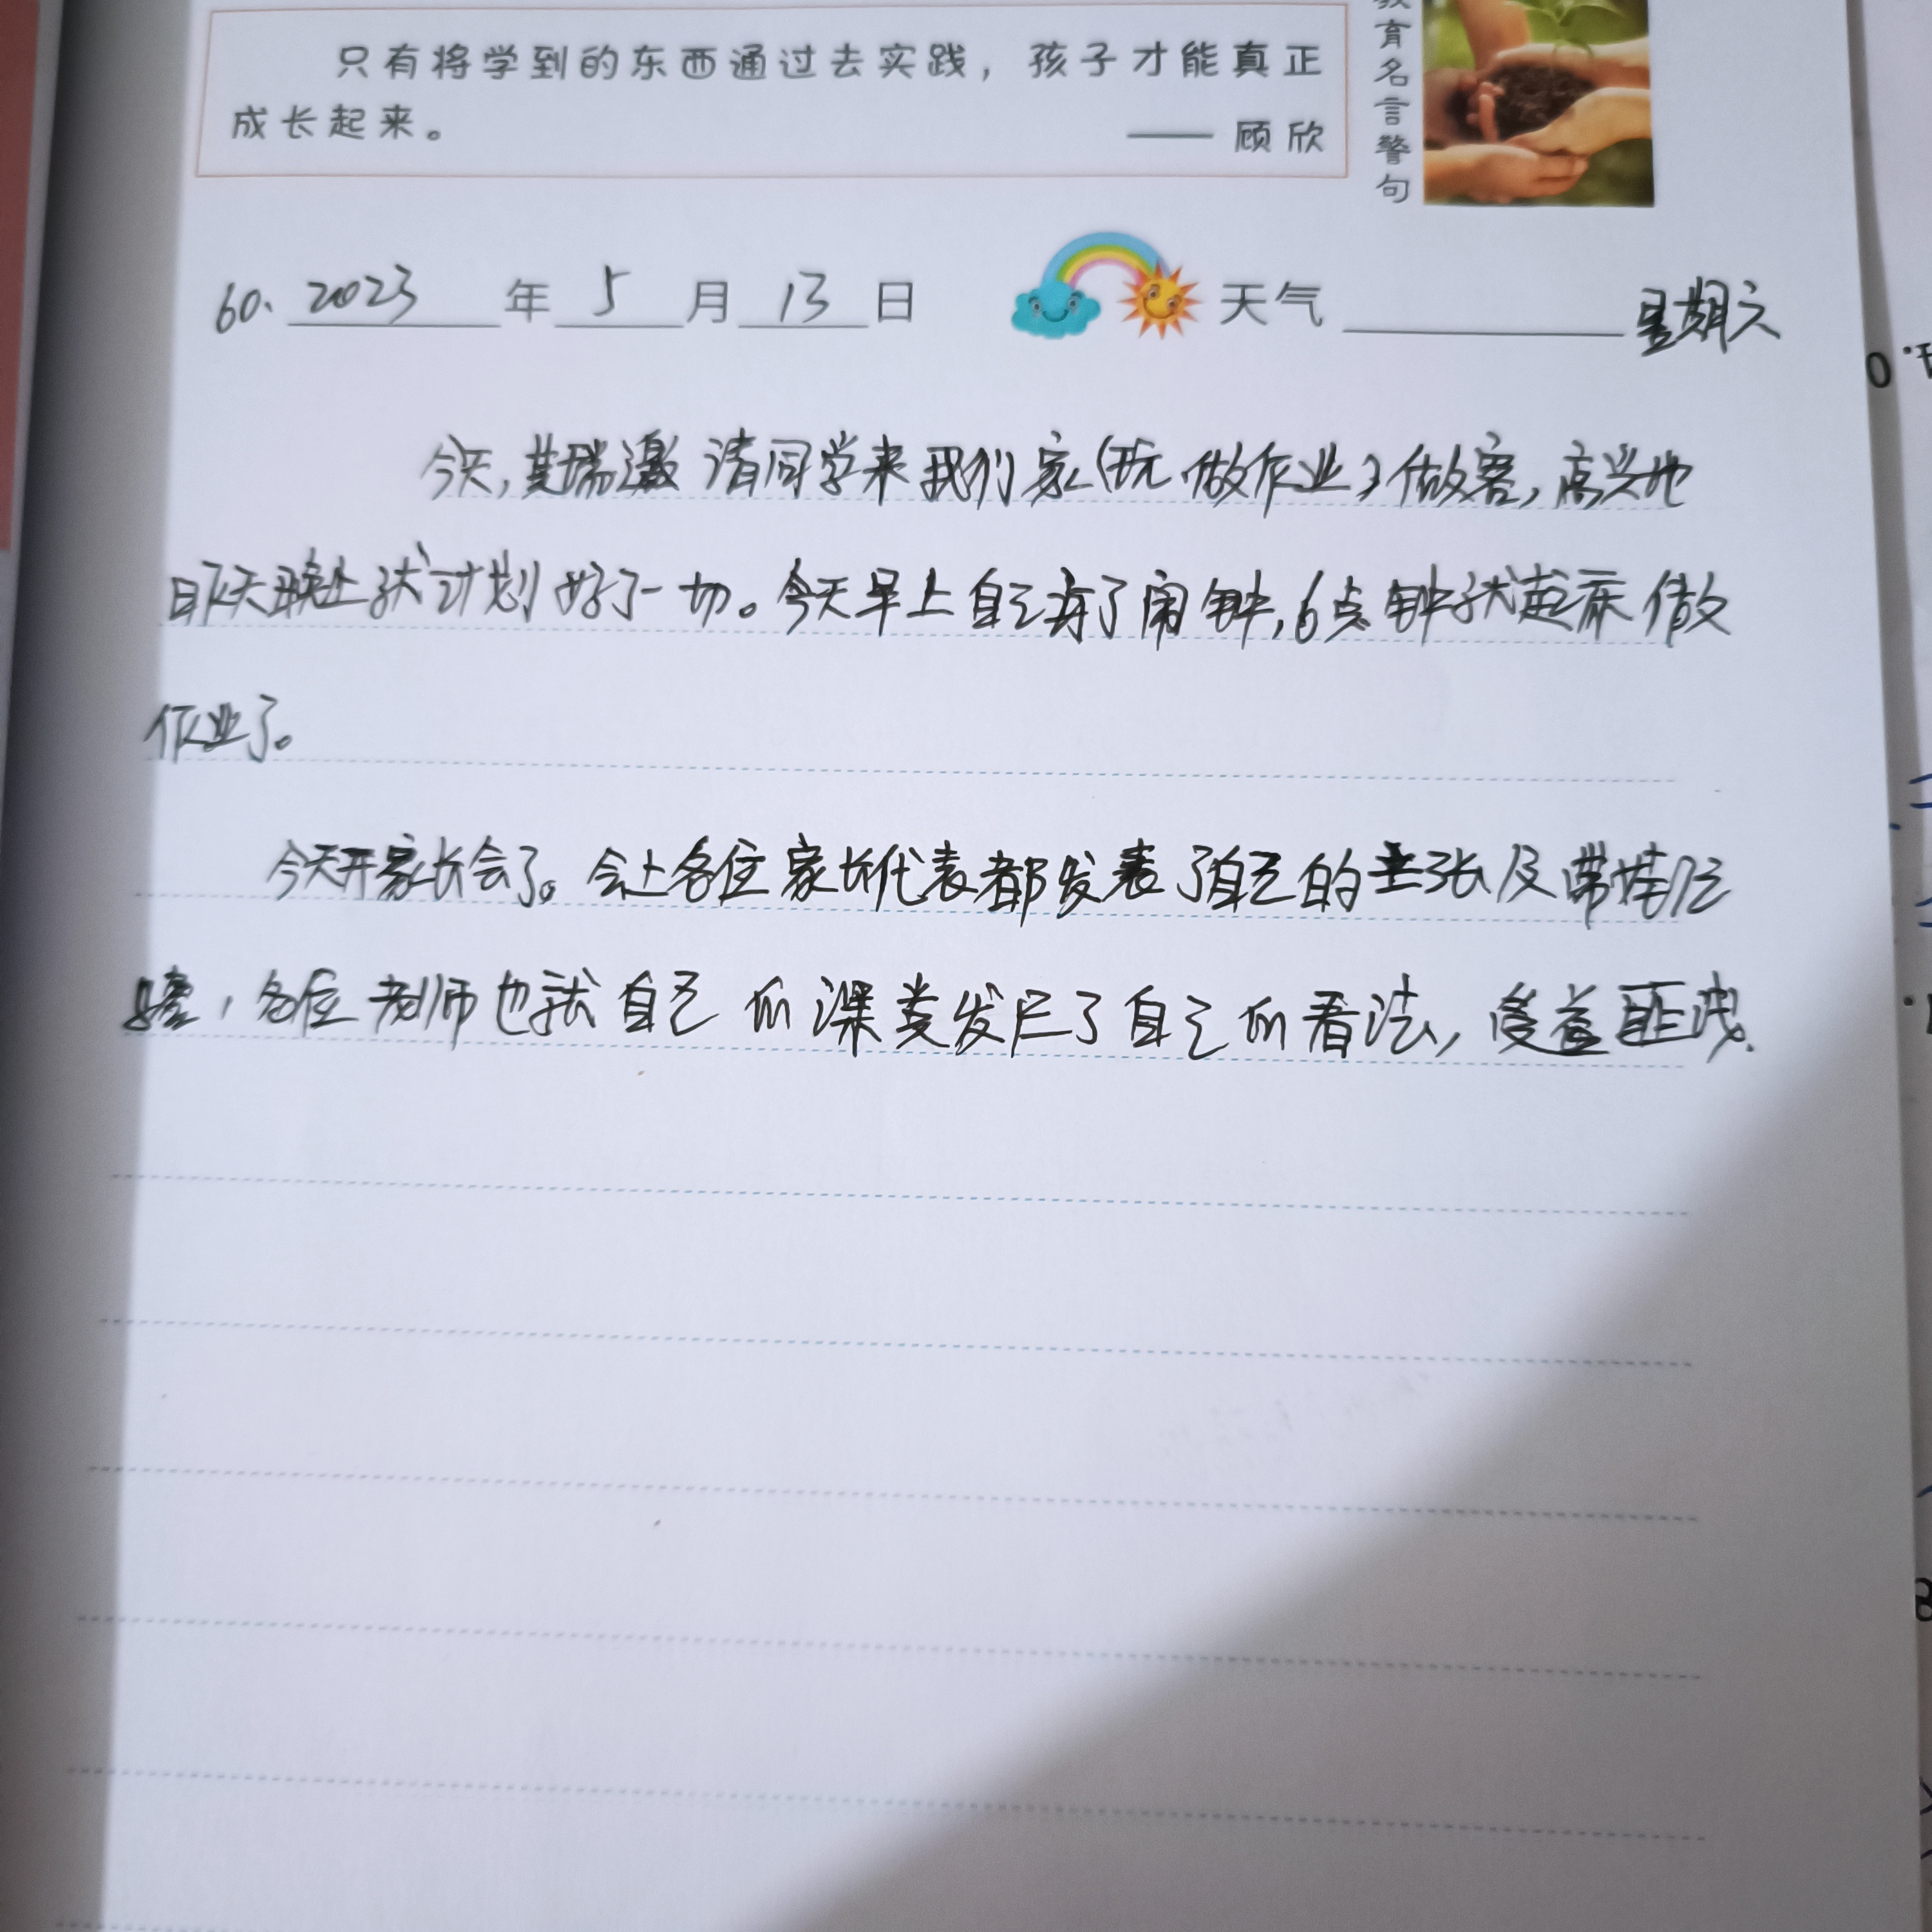 只有将学到的东西通过去实践，孩子才能真正
成长起来。
—— 顾欣
育名言警句
60. 2023 年 5 月 13 日 天气 星期六
今天，瑞邀请同学来我们家（玩、做作业）做客，高兴地
昨天晚上就计划好了一切。今天早上自己弄了闹钟，6点钟就起床做
作业了。
今天开家长会了。会上各位家长代表都发表了自己的主张及带娃经
验，各位老师也就自己的课类发言了自己的看法，受益匪浅.